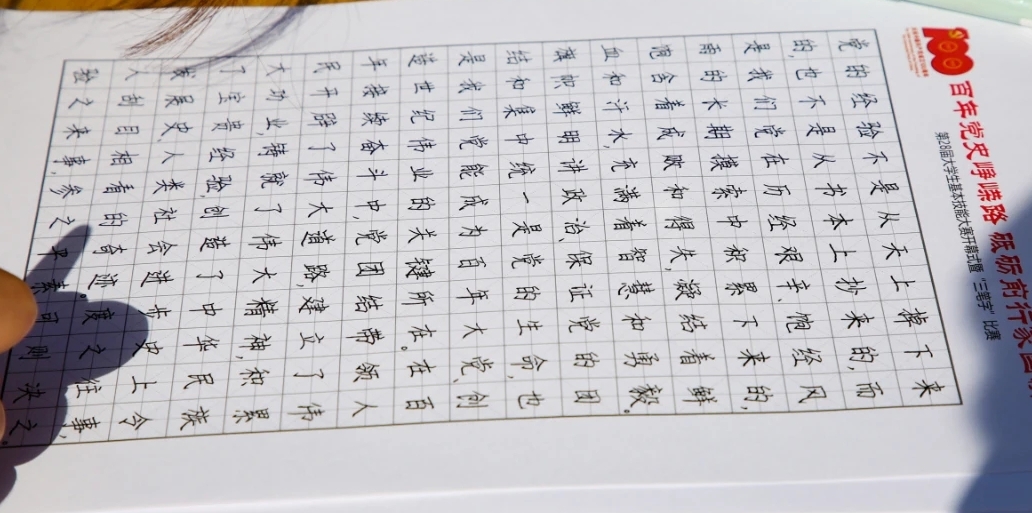 百年党史峥嵘路 砥砺前行家国
第28届大学生基本技能大赛开幕式暨“三笔字”比赛
党的经验不是从天上掉下来
的,也不是从书本上抄来的,而
是我们党在历经艰辛、饱经风
雨的长期摸索中积累下来的,
饱含着成败和得失,凝结着鲜
血和汗水,充满着智慧和勇毅。
旗帜鲜明讲政治、保证党的团
结和集中统一是党的生命,也
是我们党能成为百年大党、创
造世纪伟业的关键所在。在百
年接续奋斗中,党团结带领人
民开辟了伟大道路,建立了伟
大功业,铸就了伟大精神,积累
了宝贵经验,创造了中华民族
发展史、人类社会进步史上令
人刮目相看的奇迹。度之往事,
验之来事,参之平素,可则决之。